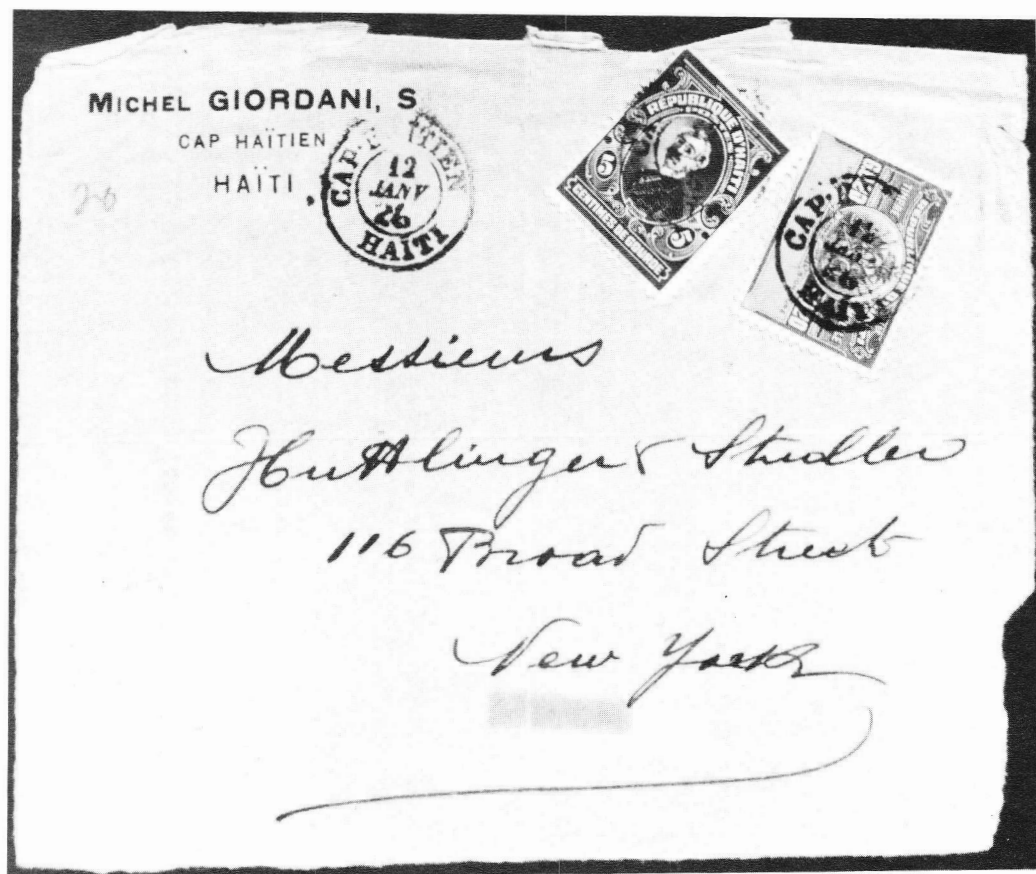 MICHEL GIORDANI, S
CAP HAÏTIEN
HAÏTI
CAP-HAITIEN
12
JANV
26
HAITI
RÉPUBLIQUE D'HAITI
5
5
CENTIMES DE GOURDE
CAP.
26
HAITI
26
Messieurs
Huttlinger & Studler
116 Broad Street
New York